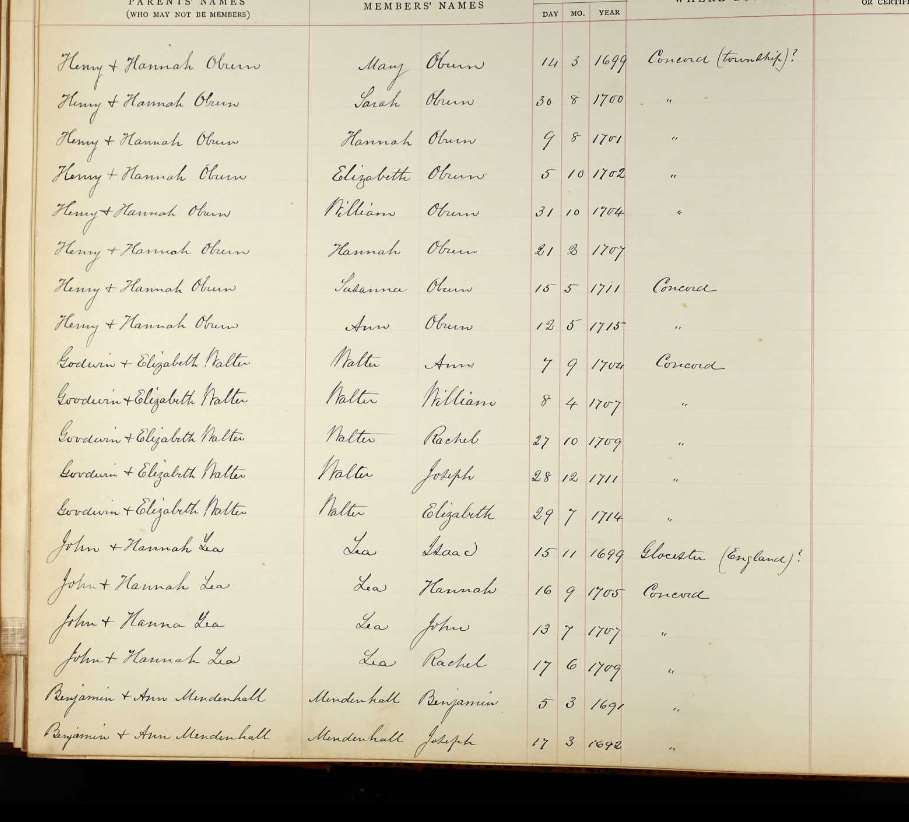 PARENTS' NAMES MEMBERS' NAMES
(WHO MAY NOT BE MEMBERS) DAY MO. YEAR OR CERTIFI
Henry + Hannah Oburn Mary Oburn 14 3 1699 Concord (township)?
Henry + Hannah Oburn Sarah Oburn 30 8 1700 "
Henry + Hannah Oburn Hannah Oburn 9 8 1701 "
Henry + Hannah Oburn Elizabeth Oburn 5 10 1702 "
Henry + Hannah Oburn William Oburn 31 10 1704 "
Henry + Hannah Oburn Hannah Oburn 21 2 1707
Henry + Hannah Oburn Susanna Oburn 15 5 1711 Concord
Henry + Hannah Oburn Ann Oburn 12 5 1715 "
Godwin + Elizabeth Walter Walter Ann 7 9 1704 Concord
Goodwin + Elizabeth Walter Walter William 8 4 1707 "
Goodwin + Elizabeth Walter Walter Rachel 27 10 1709 "
Goodwin + Elizabeth Walter Walter Joseph 28 12 1711 "
Goodwin + Elizabeth Walter Walter Elizabeth 29 7 1714 "
John + Hannah Lea Lea Isaac 15 11 1699 Glocester (England)?
John + Hannah Lea Lea Hannah 16 9 1705 Concord
John + Hanna Lea Lea John 13 7 1707 "
John + Hannah Lea Lea Rachel 17 6 1709 "
Benjamin + Ann Mendenhall Mendenhall Benjamin 5 3 1691 "
Benjamin + Ann Mendenhall Mendenhall Joseph 17 3 1692 "